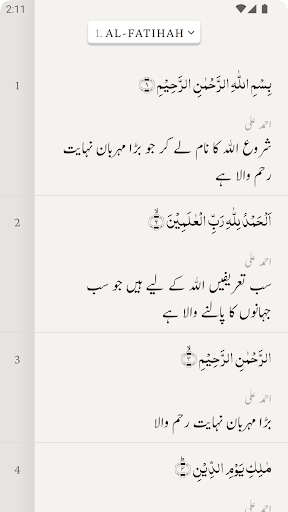 2:11
1. AL-FATIHAH
1
بِسْمِ اللّٰهِ الرَّحْمٰنِ الرَّحِيْمِ ۝١
احمد علی
شروع الله کا نام لے کر جو بڑا مہربان نہایت
رحم والا ہے
2
اَلْحَمْدُ لِلّٰهِ رَبِّ الْعٰلَمِيْنَ ۝٢ۙ
احمد علی
سب تعریفیں الله کے لیے ہیں جو سب
جہانوں کا پالنے والا ہے
3
الرَّحْمٰنِ الرَّحِيْمِ ۝٣ۙ
احمد علی
بڑا مہربان نہایت رحم والا
4
مٰلِكِ يَوْمِ الدِّيْنِ ۝٤ؕ
احمد علی